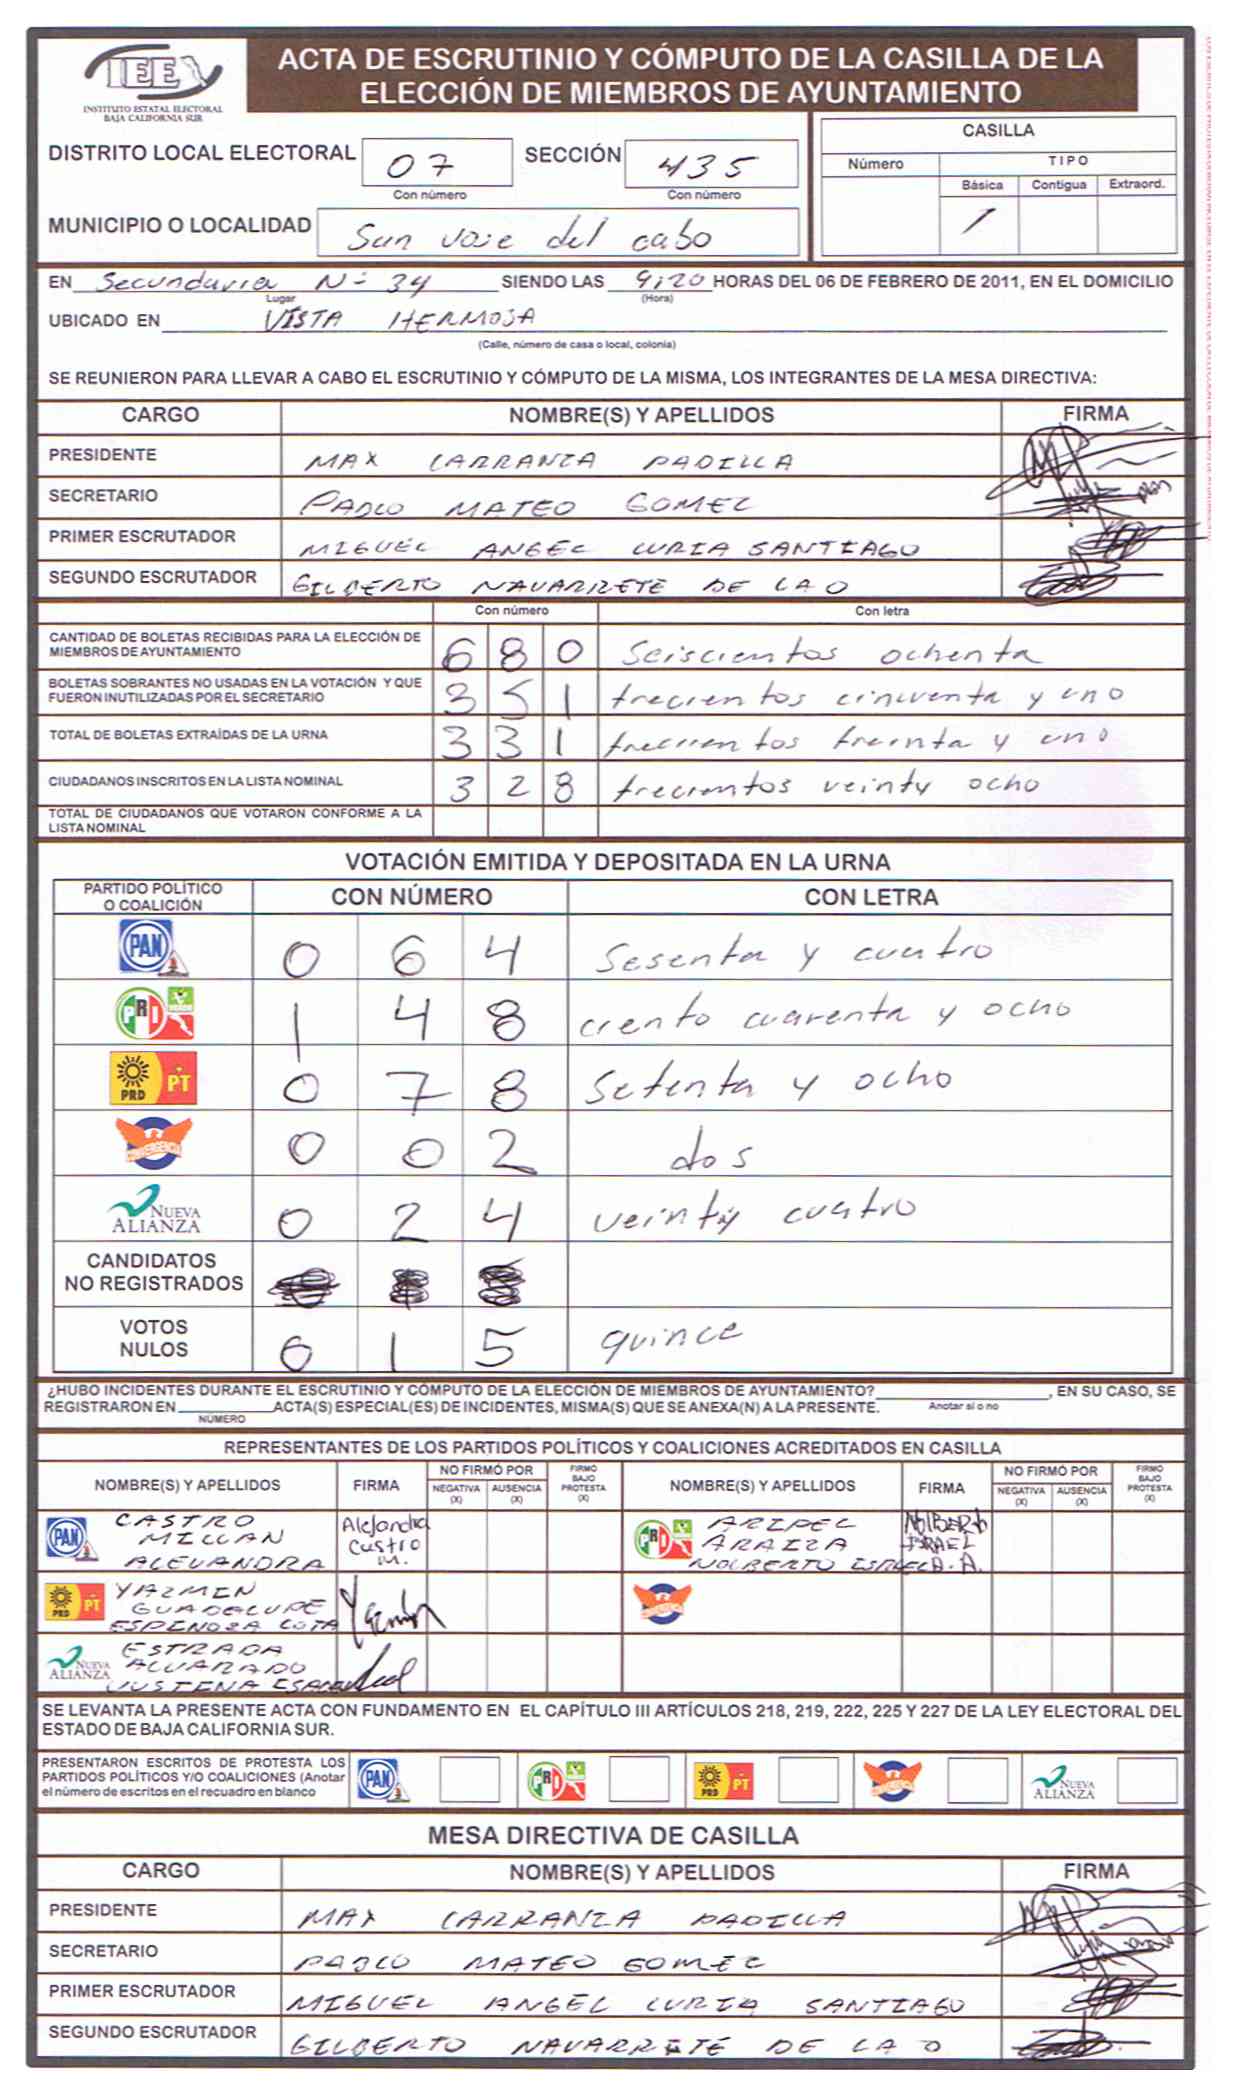 IEE
INSTITUTO ESTATAL ELECTORAL
BAJA CALIFORNIA SUR
ACTA DE ESCRUTINIO Y CÓMPUTO DE LA CASILLA DE LA
ELECCIÓN DE MIEMBROS DE AYUNTAMIENTO
DISTRITO LOCAL ELECTORAL 07 SECCIÓN 435
Con número Con número
MUNICIPIO O LOCALIDAD San Jose del cabo
CASILLA
Número TIPO
Básica Contigua Extraord.
1
EN Secundaria N- 34 SIENDO LAS 9:20 HORAS DEL 06 DE FEBRERO DE 2011, EN EL DOMICILIO
Lugar (Hora)
UBICADO EN VISTA HERMOSA
(Calle, número de casa o local, colonia)
SE REUNIERON PARA LLEVAR A CABO EL ESCRUTINIO Y CÓMPUTO DE LA MISMA, LOS INTEGRANTES DE LA MESA DIRECTIVA:
CARGO NOMBRE(S) Y APELLIDOS FIRMA
PRESIDENTE MAX CARRANZA PADILLA
SECRETARIO PABLO MATEO GOMEZ
PRIMER ESCRUTADOR MIGUEL ANGEL LURIA SANTIAGO
SEGUNDO ESCRUTADOR GILBERTO NAVARRETE DE LA O
Con número Con letra
CANTIDAD DE BOLETAS RECIBIDAS PARA LA ELECCIÓN DE
MIEMBROS DE AYUNTAMIENTO 6 8 0 Seiscientos ochenta
BOLETAS SOBRANTES NO USADAS EN LA VOTACIÓN Y QUE
FUERON INUTILIZADAS POR EL SECRETARIO 3 5 1 trecientos cincuenta y uno
TOTAL DE BOLETAS EXTRAÍDAS DE LA URNA 3 3 1 trecientos treinta y uno
CIUDADANOS INSCRITOS EN LA LISTA NOMINAL 3 2 8 trecientos veinty ocho
TOTAL DE CIUDADANOS QUE VOTARON CONFORME A LA
LISTA NOMINAL
VOTACIÓN EMITIDA Y DEPOSITADA EN LA URNA
PARTIDO POLÍTICO
O COALICIÓN CON NÚMERO CON LETRA
PAN 0 6 4 Sesenta y cuatro
PRI VERDE 1 4 8 ciento cuarenta y ocho
PRD PT 0 7 8 Setenta y ocho
CONVERGENCIA 0 0 2 dos
NUEVA ALIANZA 0 2 4 veinty cuatro
CANDIDATOS
NO REGISTRADOS
VOTOS
NULOS 0 1 5 quince
¿HUBO INCIDENTES DURANTE EL ESCRUTINIO Y CÓMPUTO DE LA ELECCIÓN DE MIEMBROS DE AYUNTAMIENTO? , EN SU CASO, SE
REGISTRARON EN ACTA(S) ESPECIAL(ES) DE INCIDENTES, MISMA(S) QUE SE ANEXA(N) A LA PRESENTE. Anotar sí o no
NÚMERO
REPRESENTANTES DE LOS PARTIDOS POLÍTICOS Y COALICIONES ACREDITADOS EN CASILLA
NOMBRE(S) Y APELLIDOS FIRMA NO FIRMÓ POR NEGATIVA (X) AUSENCIA (X) FIRMÓ BAJO PROTESTA (X) NOMBRE(S) Y APELLIDOS FIRMA NO FIRMÓ POR NEGATIVA (X) AUSENCIA (X) FIRMÓ BAJO PROTESTA (X)
PAN CASTRO MILLAN ALEJANDRA Alejandra Castro M.
PRI ARIPEZ ARAIZA NOLBERTO ISRAEL A. A. NOLBERTO ISRAEL
PRD PT YAZMEN GUADELUPE ESPINOZA COTA
CONVERGENCIA
NUEVA ALIANZA ESTRADA ALVARADO
SE LEVANTA LA PRESENTE ACTA CON FUNDAMENTO EN EL CAPÍTULO III ARTÍCULOS 218, 219, 222, 225 Y 227 DE LA LEY ELECTORAL DEL
ESTADO DE BAJA CALIFORNIA SUR.
PRESENTARON ESCRITOS DE PROTESTA LOS
PARTIDOS POLÍTICOS Y/O COALICIONES (Anotar
el número de escritos en el recuadro en blanco
PAN PRI PRD PT CONVERGENCIA NUEVA ALIANZA
MESA DIRECTIVA DE CASILLA
CARGO NOMBRE(S) Y APELLIDOS FIRMA
PRESIDENTE MAX CARRANZA PADILLA
SECRETARIO PABLO MATEO GOMEZ
PRIMER ESCRUTADOR MIGUEL ANGEL LURIA SANTIAGO
SEGUNDO ESCRUTADOR GILBERTO NAVARRETE DE LA O